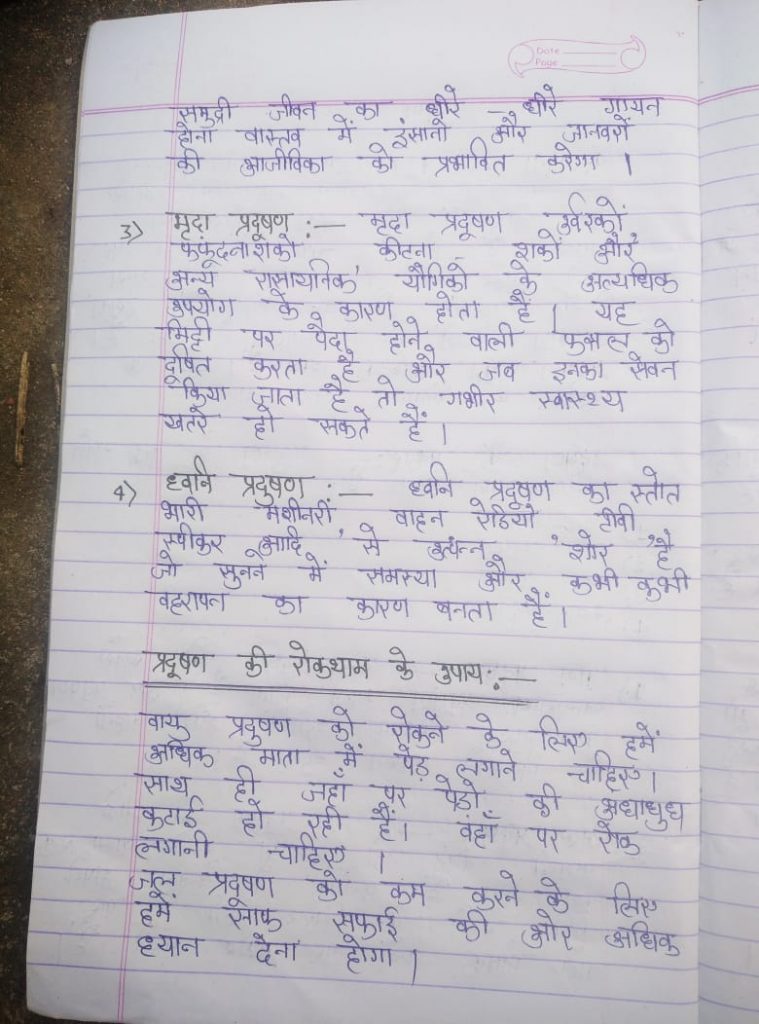 Date
Page
समुद्री जीवन का धीरे - धीरे गायब
होना वास्तव में इंसानो और जानवरों
की आजीविका को प्रभावित करेगा ।
3) मृदा प्रदूषण :— मृदा प्रदूषण उर्वरकों
फफूंदनाशकों कीटना शकों और
अन्य रासायनिक यौगिको के अत्यधिक
उपयोग के कारण होता हैं । यह
मिट्टी पर पैदा होने वाली फसल को
दूषित करता है और जब इनका सेवन
किया जाता है तो गंभीर स्वास्थ्य
खतरे हो सकते हैं ।
4) ध्वनि प्रदुषण :— ध्वनि प्रदूषण का स्तोत
भारी मशीनरी वाहन रेडियो टीवी
स्पीकर आदि से उत्पन्न 'शोर' है
जो सुनने में समस्या और कभी कभी
वहरापन का कारण बनता हैं ।
प्रदूषण की रोकथाम के उपाय :—
वायु प्रदुषण को रोकने के लिए हमें
अधिक माता में पेड़ लगाने चाहिए ।
साथ ही जहाँ पर पेड़ो की अधाधुध
कटाई हो रही हैं। वहाँ पर रोक
लगानी चाहिए ।
जल प्रदुषण को कम करने के लिए
हमें साफ सफाई की और अधिक
ध्यान देना होगा ।